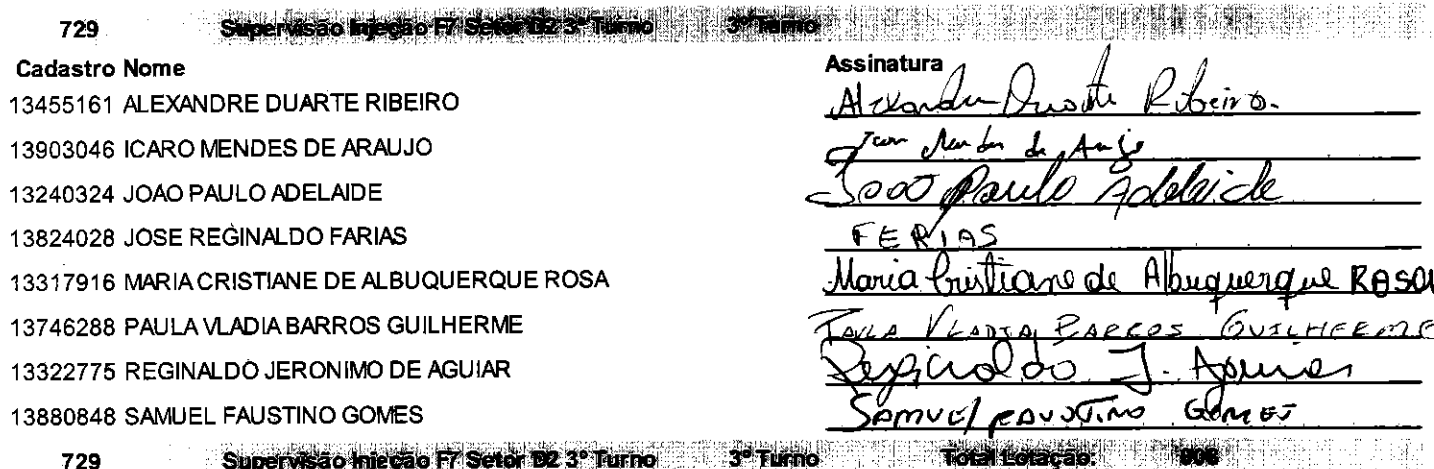 729 Supervisão Injeção F7 Setor D2 3º Turno 3º Turno
Cadastro Nome Assinatura
13455161 ALEXANDRE DUARTE RIBEIRO Alexandre Duarte Ribeiro.
13903046 ICARO MENDES DE ARAUJO Icaro Mendes de Araujo
13240324 JOAO PAULO ADELAIDE Joao Paulo Adelaide
13824028 JOSE REGINALDO FARIAS FERIAS
13317916 MARIA CRISTIANE DE ALBUQUERQUE ROSA Maria Cristiane de Albuquerque ROSA
13746288 PAULA VLADIA BARROS GUILHERME PAULA VLADIA BARROS GUILHERME
13322775 REGINALDO JERONIMO DE AGUIAR Reginaldo J. Aguiar
13880848 SAMUEL FAUSTINO GOMES SAMUEL FAUSTINO GOMES
729 Supervisão Injeção F7 Setor D2 3º Turno 3º Turno Total Lotação: